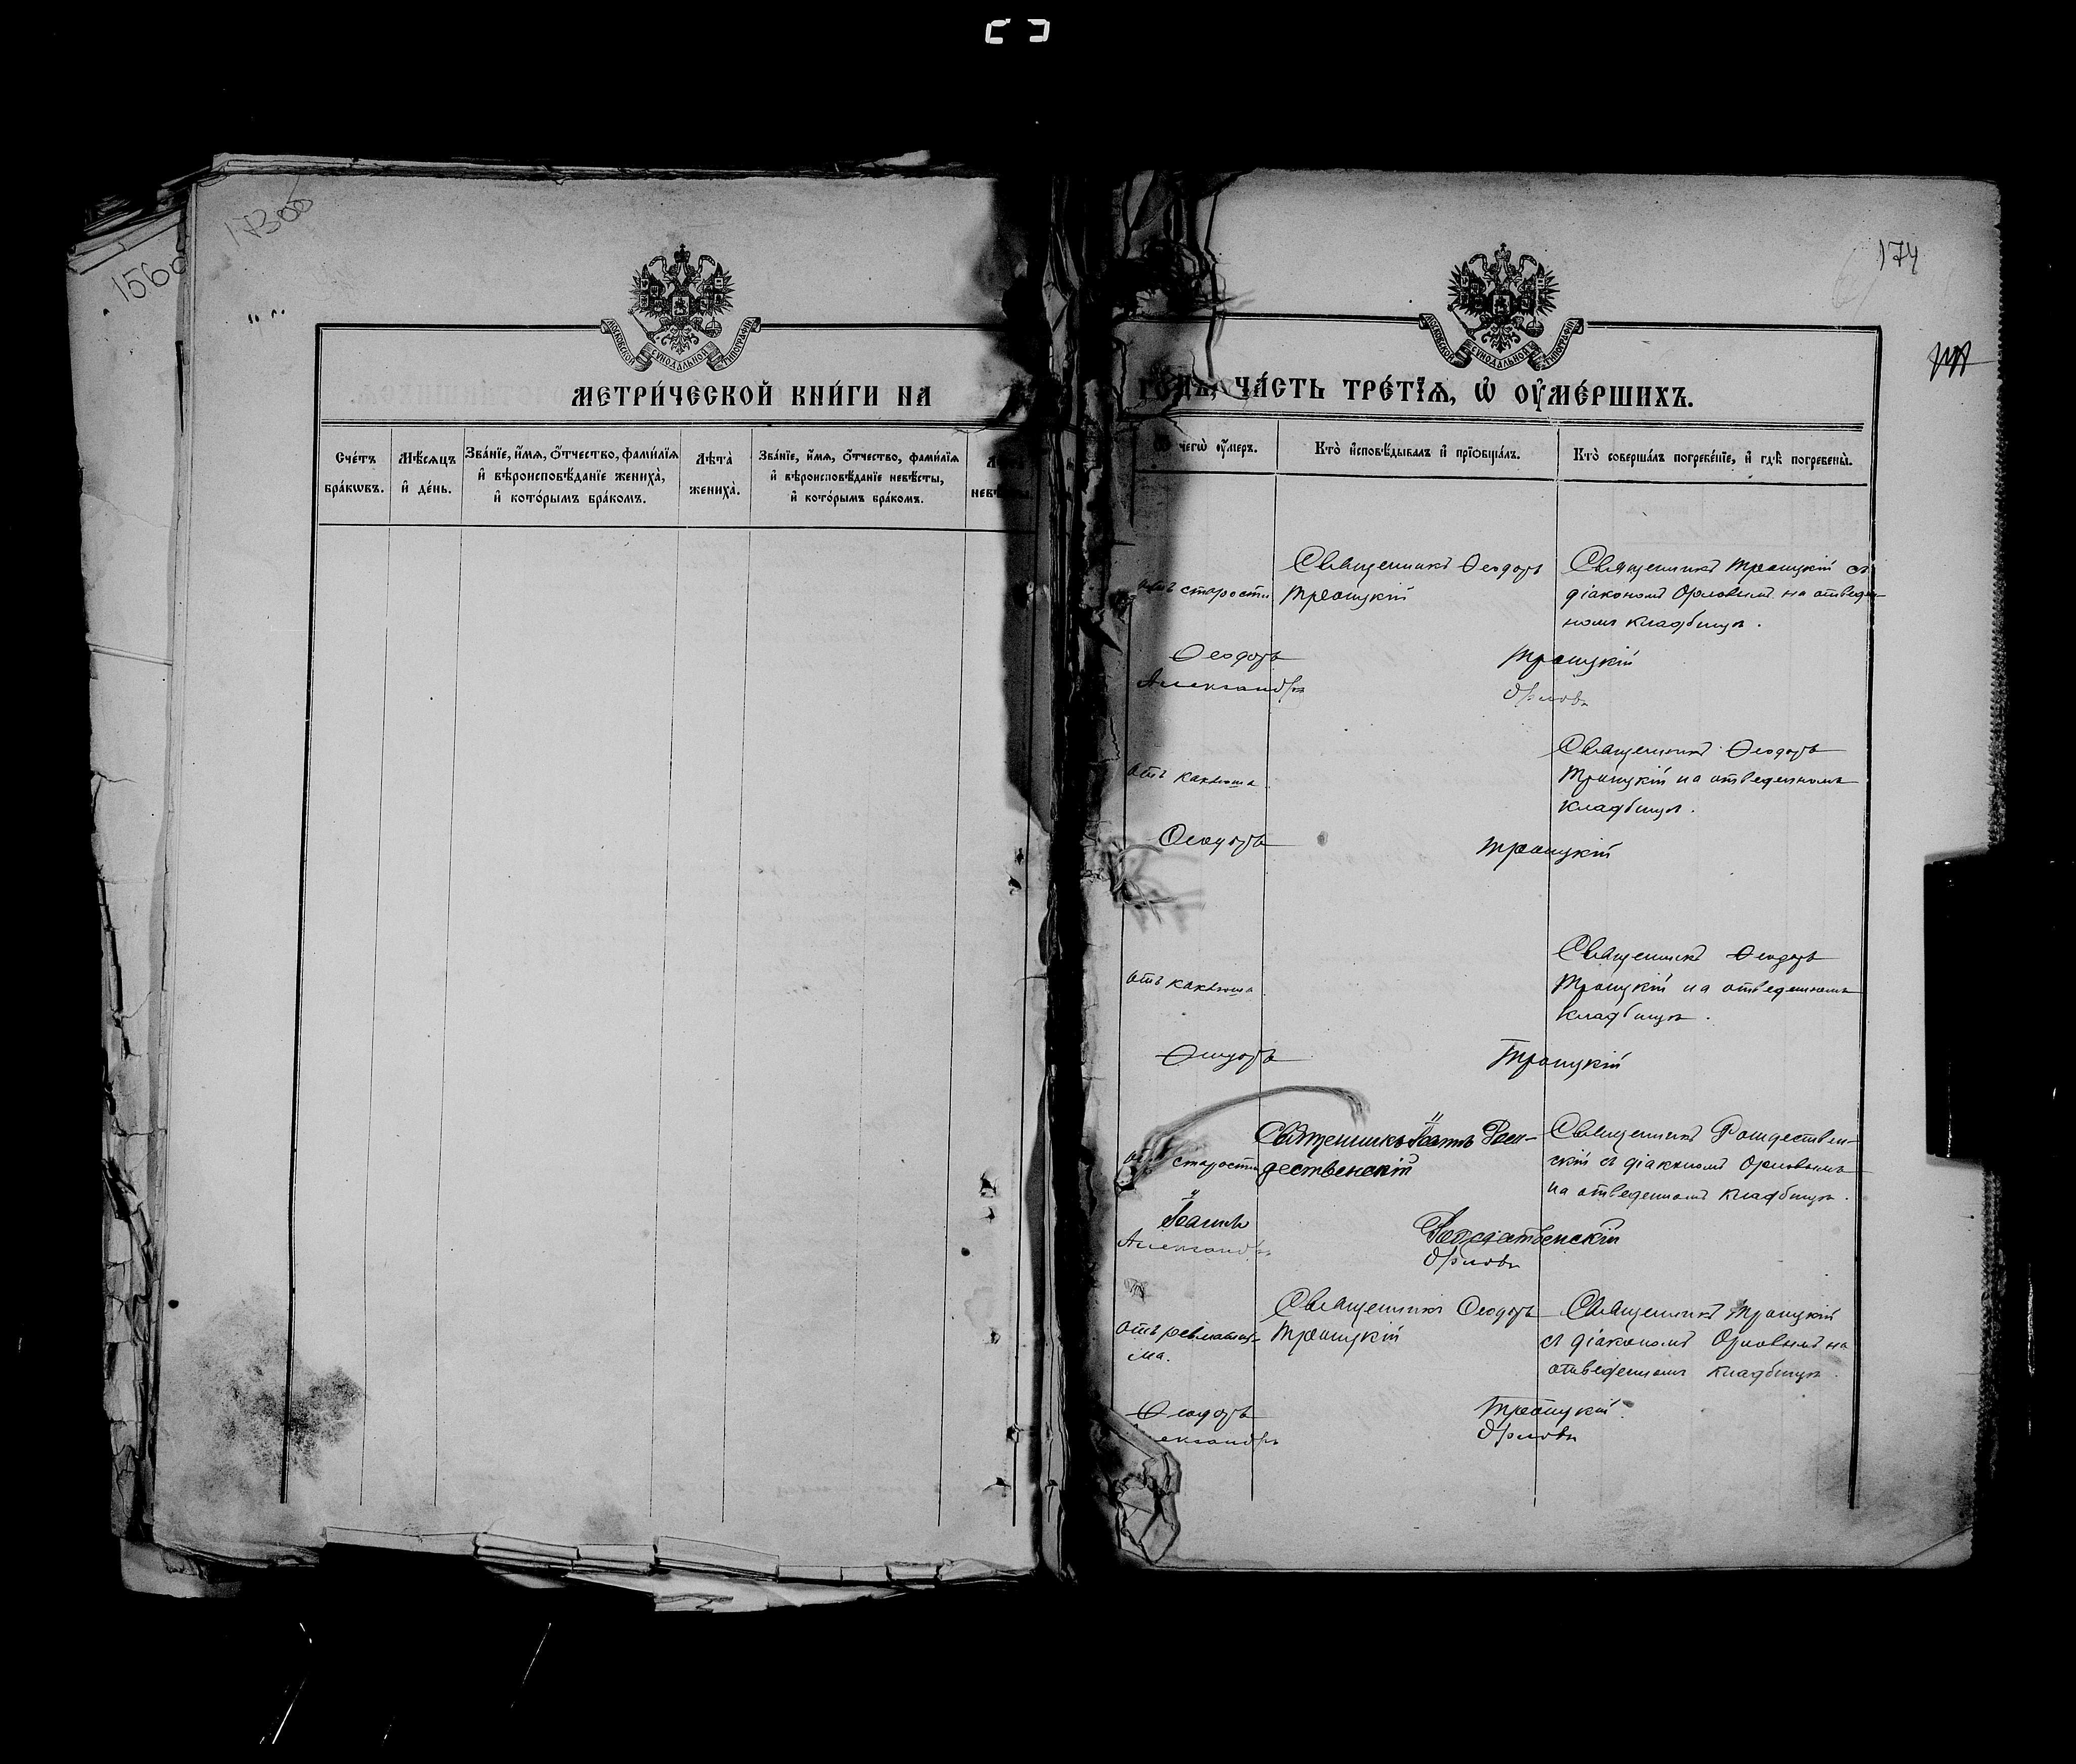 1730об
156об
МОСКОВСКОЙ СѴНОДАЛЬНОЙ ТИПОГРАФІИ
МЕТРИ́ЧЕСКОЙ КНИ́ГИ НА
Сче́тъ бра́кѡвъ.
Мѣ́сѧцъ и҆ де́нь.
Зва́нїе, и҆́мѧ, ѻ҆́тчество, фами́лїѧ
и҆ вѣроисповѣ́данїе жениха̀,
и҆ кото́рымъ бра́комъ.
Лѣта̀ жениха̀.
Зва́нїе, и҆́мѧ, ѻ҆́тчество, фами́лїѧ
и҆ вѣроисповѣ́данїе невѣ́сты,
и҆ кото́рымъ бра́комъ.
174
МОСКОВСКОЙ СѴНОДАЛЬНОЙ ТИПОГРАФІИ
ГО́ДЪ, ЧА́СТЬ ТРЕ́ТЇѦ, Ѡ҆ ОУ҆МЕ́РШИХЪ.
чегѡ̀ ᲂу҆́меръ.
Кто̀ и҆сповѣ́дывалъ и҆ прїѡбща́лъ.
Кто̀ соверша́лъ погребе́нїе, и҆ гдѣ̀ погребены̀.
отъ старости
Священникъ Ѳеодоръ
Троицкій
Священникъ Троицкій съ
діакономъ Орловымъ на отведен-
номъ кладбищѣ.
Ѳеодоръ Троицкій
Александръ Орловъ
отъ коклюша
Священникъ Ѳеодоръ
Троицкій на отведенномъ
кладбищѣ.
Ѳеодоръ Троицкій
отъ коклюша
Священникъ Ѳеодоръ
Троицкій на отведенномъ
кладбищѣ.
Ѳеодоръ Троицкій
отъ старости
Священникъ Іоаннъ Рож-
дественскій
Священникъ Рождествен-
скій съ діакономъ Орловымъ
на отведенномъ кладбищѣ.
Іоаннъ Рождественскій
Александръ Орловъ
отъ ревматиз-
ма.
Священникъ Ѳеодоръ
Троицкій
Священникъ Троицкій
съ діакономъ Орловымъ на
отведенномъ кладбищѣ.
Ѳеодоръ Троицкій
Александръ Орловъ